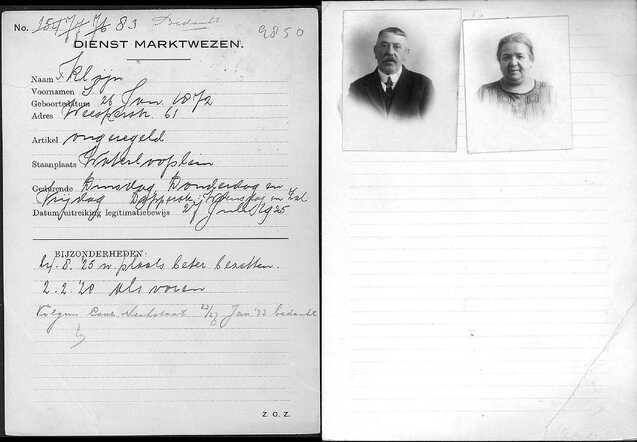 No. 83 Bedankt 9850
DIENST MARKTWEZEN.
Naam Klijn
Voornamen S.
Geboortedatum 26 Jan. 1872
Adres Weesperstr. 61
Artikel ongeregeld
Staanplaats Waterlooplein
Gedurende Dinsdag, Donderdag en
Vrijdag Dapperstr. Woensdag en Zat
Datum uitreiking legitimatiebewijs 27 Juli 1925
BIJZONDERHEDEN:
8. '25 w. plaats beter bezetten.
2.2. als voren
Volgens Jan '33 bedankt
Z. O. Z.